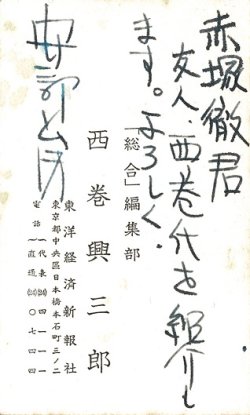 赤塚徹君
友人・西巻氏を紹介し
ます。よろしく.
安部公房
「総合」編集部
西巻興三郎
東洋経済新報社
東京都中央区日本橋本石町三ノ二
電話 代表(24)四一一一
直通(24)〇七四四